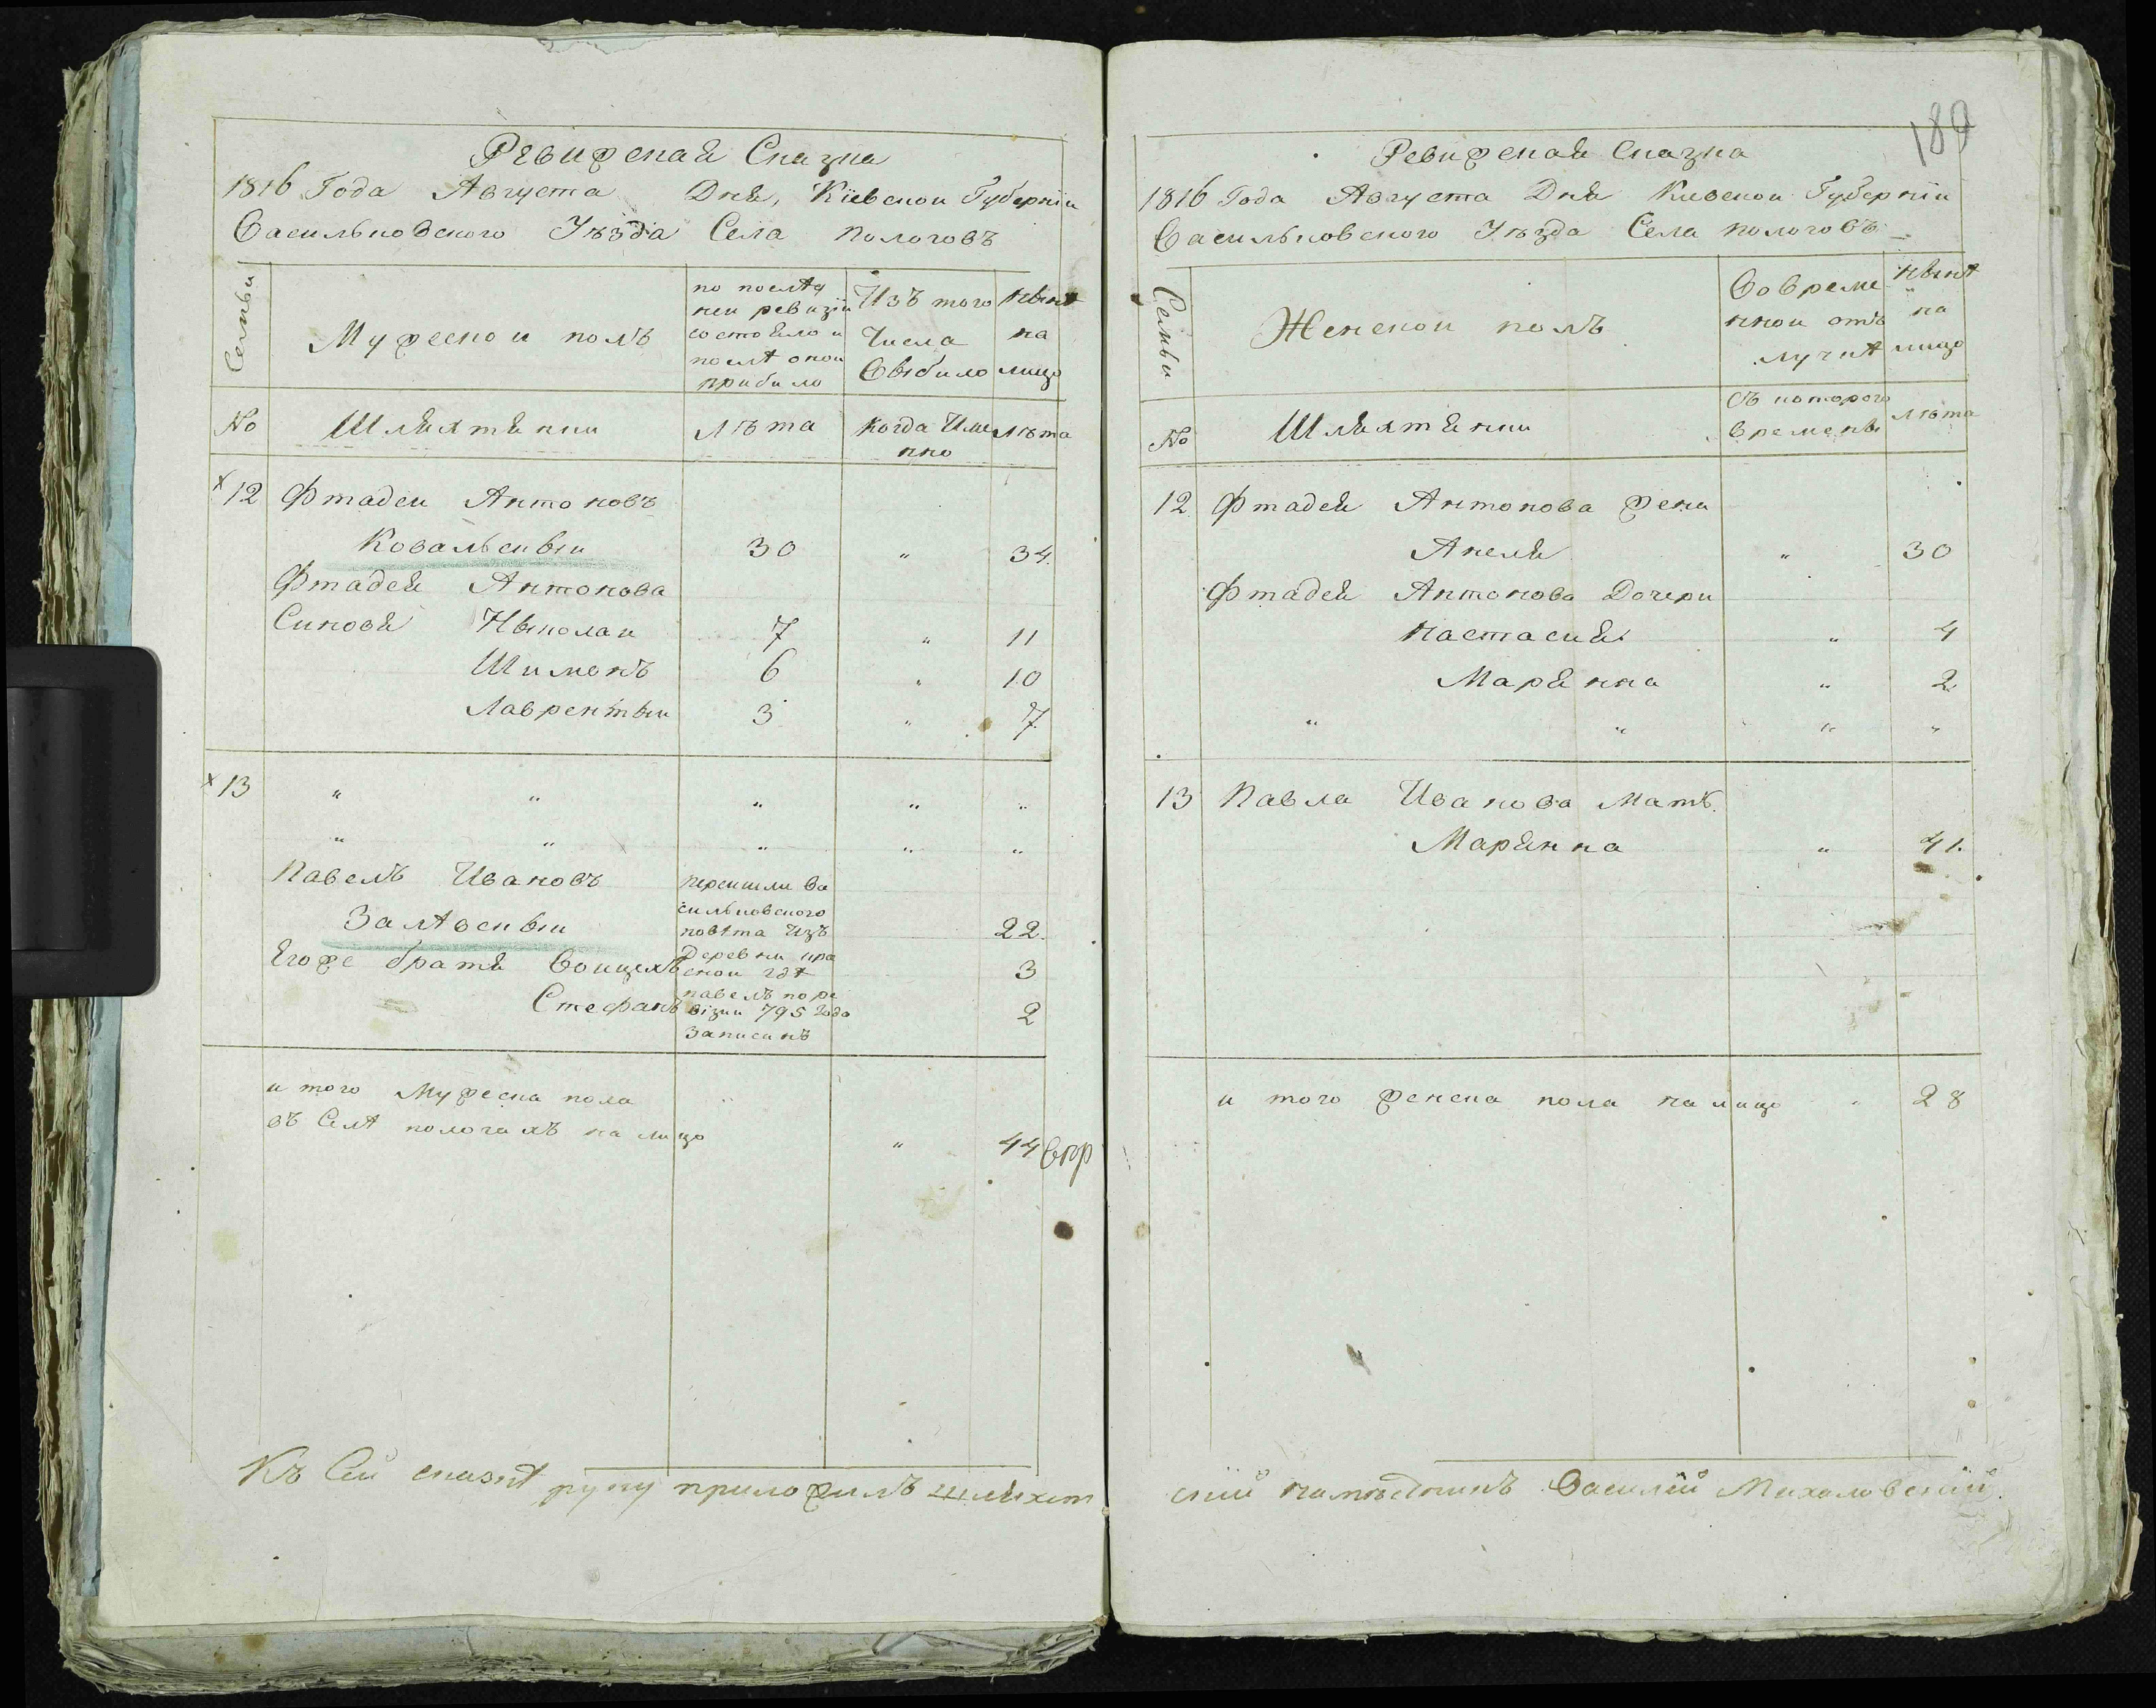 Ревижская Сказка
1816 Года Августа Дня, Кіевской Губерніи
Васильковского Уѣзда Села Пологовъ
Семьи
Мужеской полъ
по послѣд
ней ревизіи
состояло и
послѣ оной
прибило
Изъ того
Числа
Выбило
Нынѣ
на
лицо
No
Шляхтянки
Лѣта
когда Име
нно
Лѣта
х 12 Фтадей Антоновъ
Ковальскый 30 „ 34.
Фтадея Антонова
Синовя Ныколай 7 „ 11
Шимонъ 6 „ 10
Лаврентый 3 „ 7
х 13 „ „ „ „ „
„ „ „ „ „
Павелъ Ивановъ
Залѣвскый 22.
Егоже братя Войцехъ 3
Стефанъ 2
перейшли Ва
сильковского
повѣта Изъ
Деревни кра
сной гдѣ
павелъ по ре
візии 795 года
записинъ
и того Мужеска пола
въ Селѣ пологахъ на лицо „ 44
Къ Сей сказкѣ руку приложилъ шляхет
180
Ревижская Сказка
1816 Года Августа Дня Киевской Губерніи
Васильковского Уѣзда Села пологовъ
Семьи
Женской полъ
Во време
нной отъ
лучкѣ
Нынѣ
на
лицо
No
Шляхтянки
Съ которого
времены
Лѣта
12 Фтадея Антонова жена
Анеля „ 30
Фтадея Антонова Дочери
Настасия „ 4
Марянна „ 2
„ „ „ „
13 Павла Иванова Мать
Марянна „ 41.
и того женска пола на лицо „ 28
скій намѣстникъ Василій Михаловскій